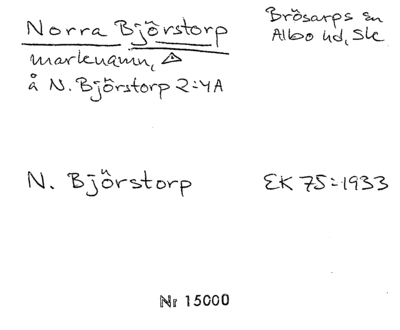 Norra Björstorp
Brösarps sn
Albo hd, Sk
marknamn, △
å N. Björstorp 2:4A
N. Björstorp EK 75=1933
Nr 15000